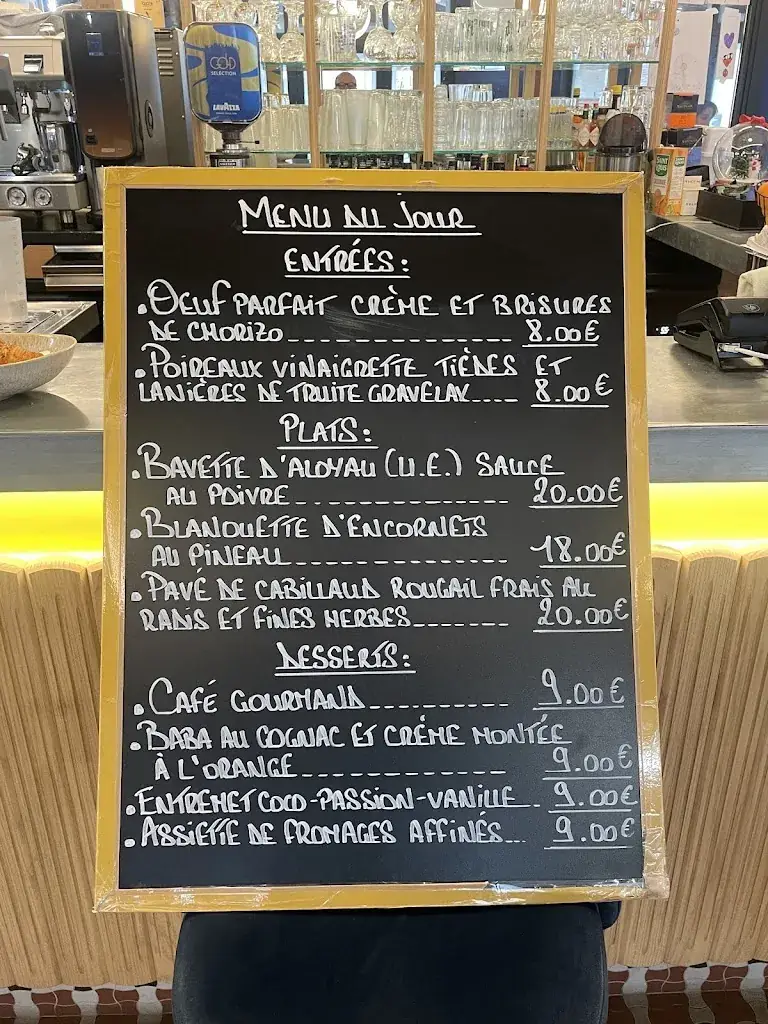 GOLD
SELECTION
LAVAZZA
MENU DU JOUR
ENTRÉES:
• OEUF PARFAIT CRÈME ET BRISURES
DE CHORIZO_______________ 8.00€
• POIREAUX VINAIGRETTE TIÈDES ET
LANIÈRES DE TRUITE GRAVELAX.... 8.00€
PLATS:
• BAVETTE D'ALOYAU (U.E.) SAUCE
AU POIVRE_______________ 20.00€
• BLANQUETTE D'ENCORNETS
AU PINEAU_______________ 18.00€
• PAVÉ DE CABILLAUD ROUGAIL FRAIS AU
RADIS ET FINES HERBES_______ 20.00€
DESSERTS:
• CAFÉ GOURMAND__________ 9.00€
• BABA AU COGNAC ET CRÈME MONTÉE
À L'ORANGE_____________ 9.00€
• ENTREMET COCO-PASSION-VANILLE.. 9.00€
• ASSIETTE DE FROMAGES AFFINÉS... 9.00€